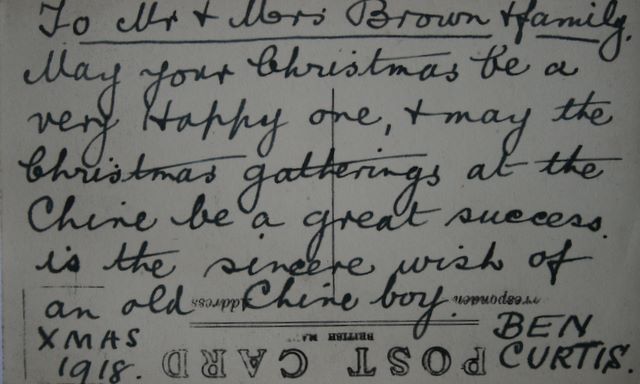 To Mr & Mrs Brown & family.
May your Christmas be a
very Happy one, & may the
Christmas gatherings at the
Chine be a great success.
is the sincere wish of
an old Chine boy.
XMAS
1918.
BEN
CURTIS.
POST CARD
Address